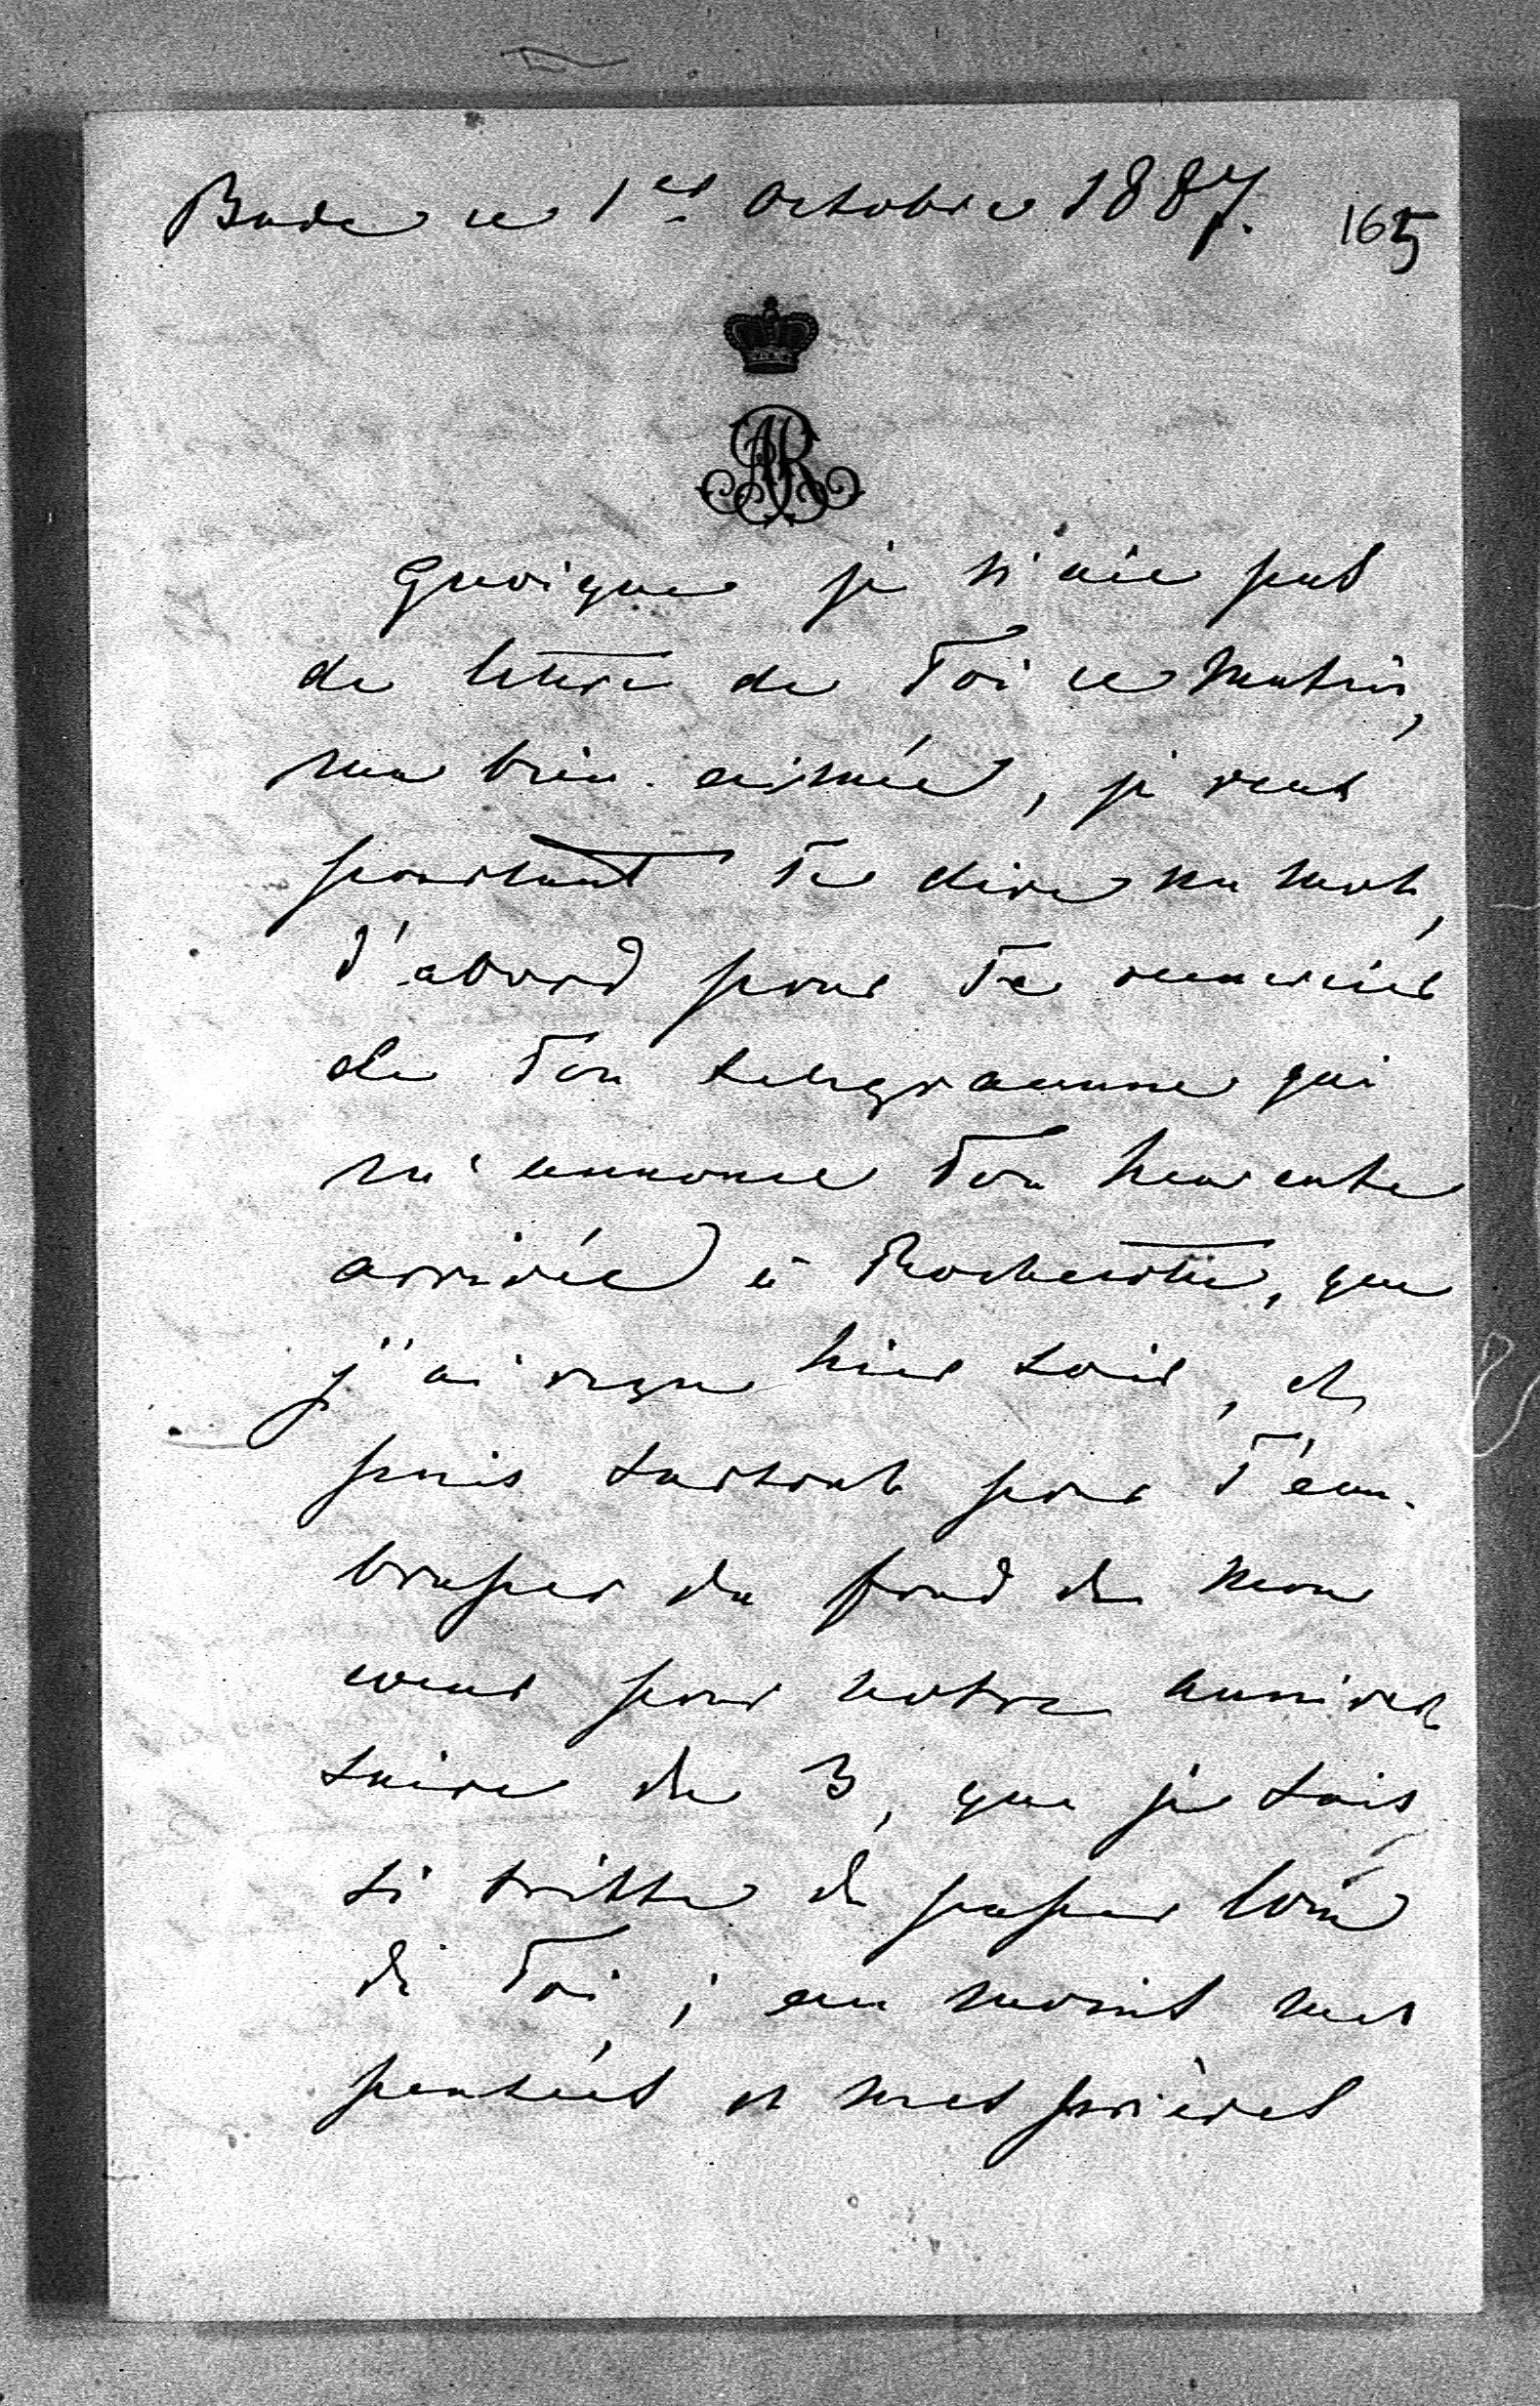 Bade ce 1er Octobre 1887.
165
AR
Quoique je n'aie pas
de lettre de Toi ce matin,
ma bien-aimée, je veux
pourtant Te dire un mot,
d'abord pour Te remercier
de Ton telegramme qui
m'annonce Ton heureuse
arrivée à, que
j'ai reçu hier soir, et
puis surtout pour T'em-
brasser du fond de mon
coeur pour notre anniver
saire du 3, que je suis
si triste de passer loin
de Toi; au moins mes
pensées et mes prières